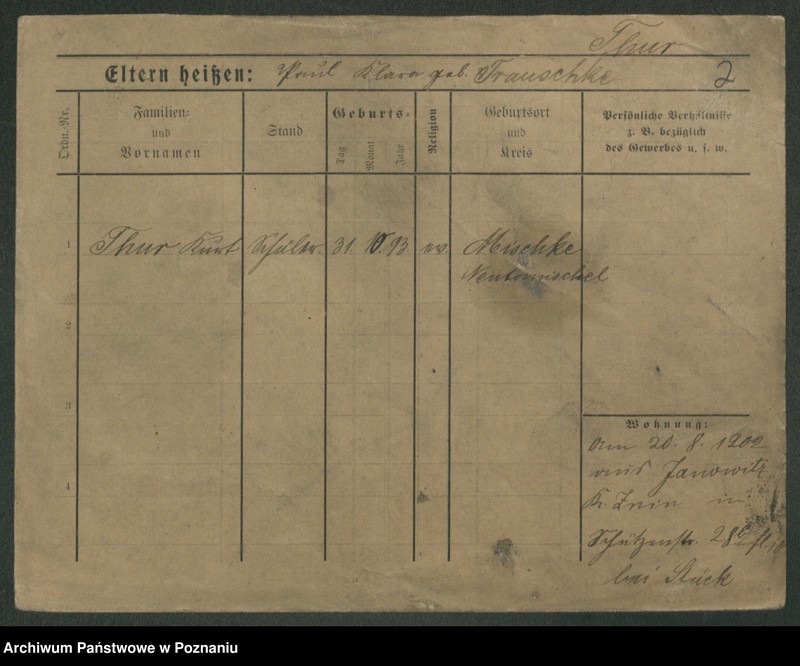 Thur
Eltern heißen: Paul Klara geb. Trauschke 2
Ordn.-Nr.
Familien- und Vornamen
Stand
Geburts-
Tag
Monat
Jahr
Religion
Geburtsort und Kreis
Persönliche Verhältnisse z. B. bezüglich des Gewerbes u. s. w.
1 Thur Kurt Schüler. 31. 10. 93 ev. Mischke
Neutomischel
2
3
4
Wohnung:
Am 20. 8. 1902
aus Janowitz
Kr. Znin in
Schützenstr. 28
bei Stück
Archiwum Państwowe w Poznaniu